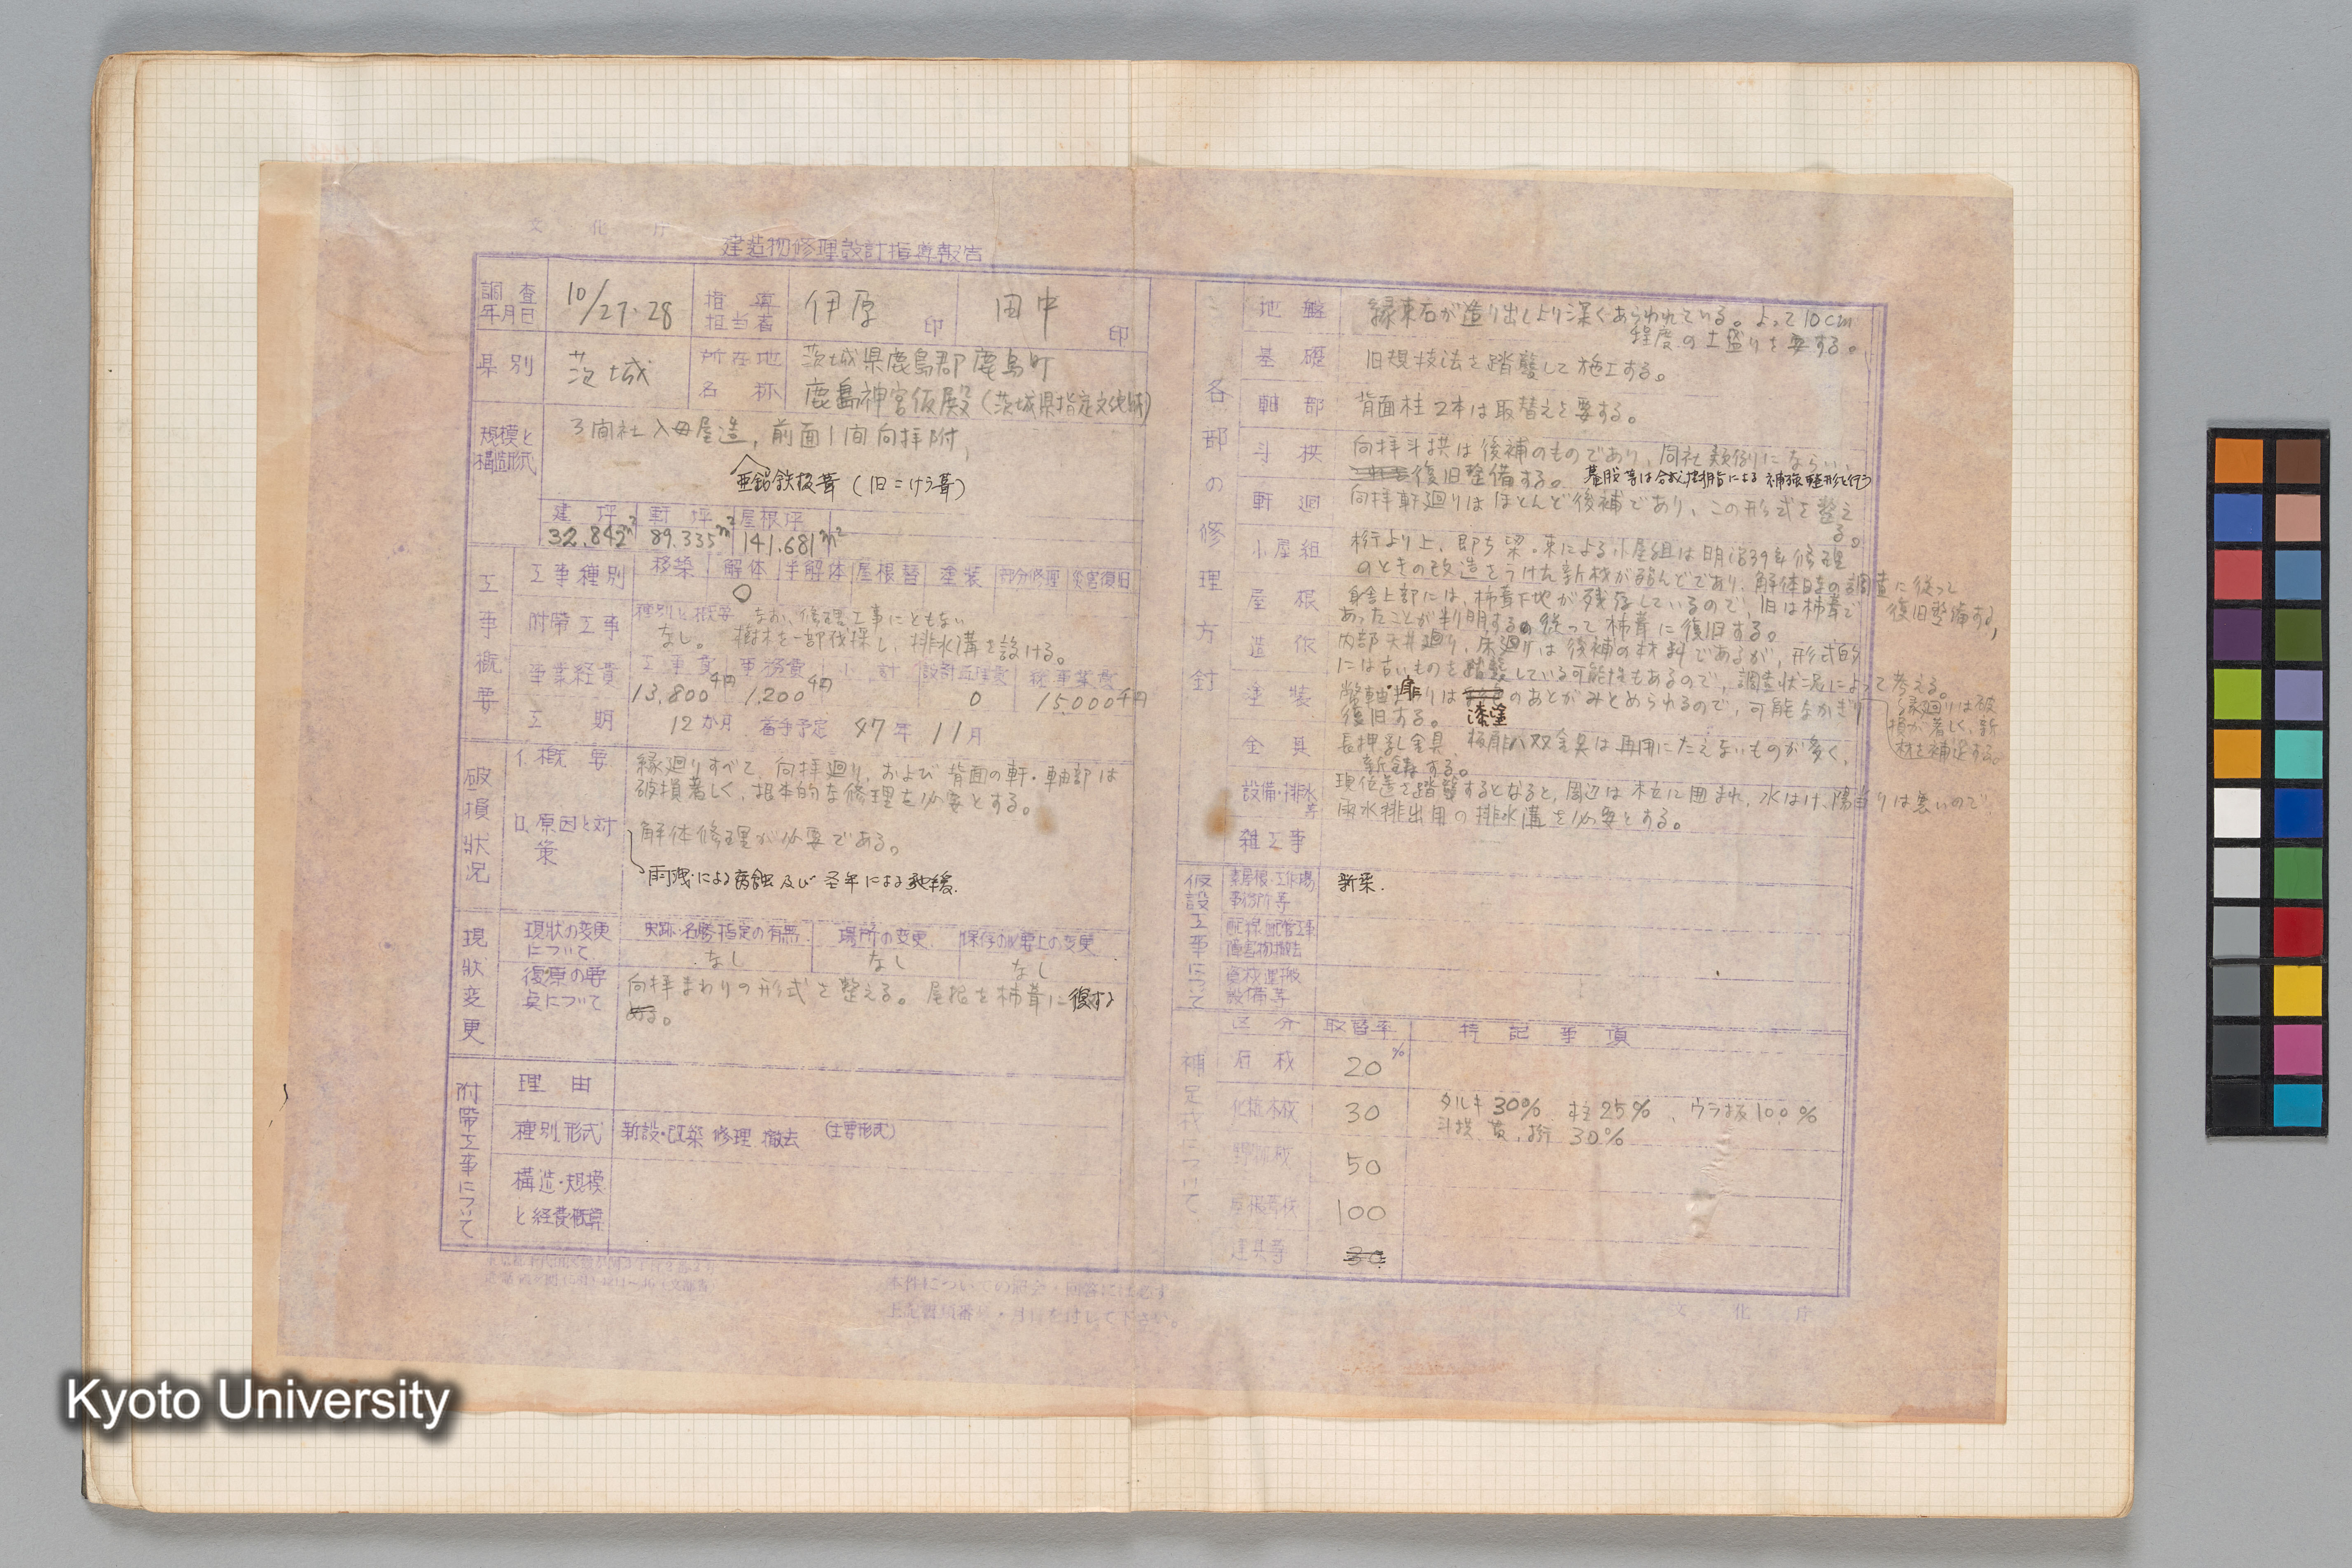 文化庁
建造物修理設計指導報告
調査年月日
10/27・28
指導担当者
伊原 印
田中 印
県別
茨城
所在地
茨城県鹿島郡鹿島町
名称
鹿島神宮仮殿(茨城県指定文化財)
規模と構造形式
3間社入母屋造,前面1間向拝附,
亜鉛鉄板葺(旧こけら葺)
建坪 軒坪 屋根坪
32.842m² 89.335m² 141.681m²
工事概要
工事種別
移築 解体 半解体 屋根替 塗装 部分修理 災害復旧
○
附帯工事
種別と概要 なお、修理工事にともない
なし。 樹木を一部伐採し、排水溝を設ける。
事業経費
工事費 事務費 小計 設計監理費 総事業費
13,800千円 1,200千円 0 15,000千円
工期
12か月 着手予定 47年11月
破損状況
イ.概要
縁廻りすべて、向拝廻り、および背面の軒・軸部は
破損著しく、根本的な修理を必要とする。
ロ.原因と対策
解体修理が必要である。
雨洩による腐蝕及び
現状変更
現状の変更について
史跡・名勝指定の有無 場所の変更 保存の必要上の変更
なし なし なし
復原の要点について
向拝まわりの形式を整える。屋根を柿葺に復する
附帯工事について
理由
種別.形式
新設・改築 修理 撤去 (主要形式)
構造・規模
と経費概算
本件についての照会・回答には必ず
上記書類番号・月日を付して下さい。
各部の修理方針
地盤
縁束石が造り出しより深くあらわれている。よって10cm
程度の土盛りを要する。
基礎
旧規技法を踏襲して施工する。
軸部
背面柱2本は取替えを要する。
斗栱
向拝斗拱は後補のものであり、同社類例にならい、
復旧整備する。 蟇股等は合成樹脂による補強整形を行う
軒廻
向拝軒廻りはほとんど後補であり、この形式を整える。
小屋組
桁より上、即ち梁・束による小屋組は明治39年修理
のときの改造をうけた新材が殆んどであり、解体時の調査に従って
復旧整備する,
屋根
身舎上部には、柿葺下地が残存しているので、旧は柿葺で
あったことが判明する。従って柿葺に復旧する。
造作
内部天井廻り、床廻りは後補の材料であるが、形式的
には古いものを踏襲している可能性もあるので、調査状況によって考える。
縁廻りは破
損が著しく、新
材を補足する。
塗装
幣軸・扉まわりは漆塗のあとがみとめられるので、可能なかぎり
復旧する。
金具
長押乳金具、板扉八双金具は再用にたえないものが多く、
新鋳する。
設備・排水等
現位置を踏襲するとなると、周辺は木立に囲まれ、水はけ、陽当りは悪いので
雨水排出用の排水溝を必要とする。
雑工事
仮設工事について
素屋根・工作場
事務所等
新築.
配線配管工事
障害物撤去
資材運搬
設備等
補足材について
区分 取替率 特記事項
石材 20%
化粧木材 30 タルキ30% 柱25%、ウラ板100%
斗拱 桁 30%
野物材 50
屋根葺材 100
建具等 30
文化庁
Kyoto University